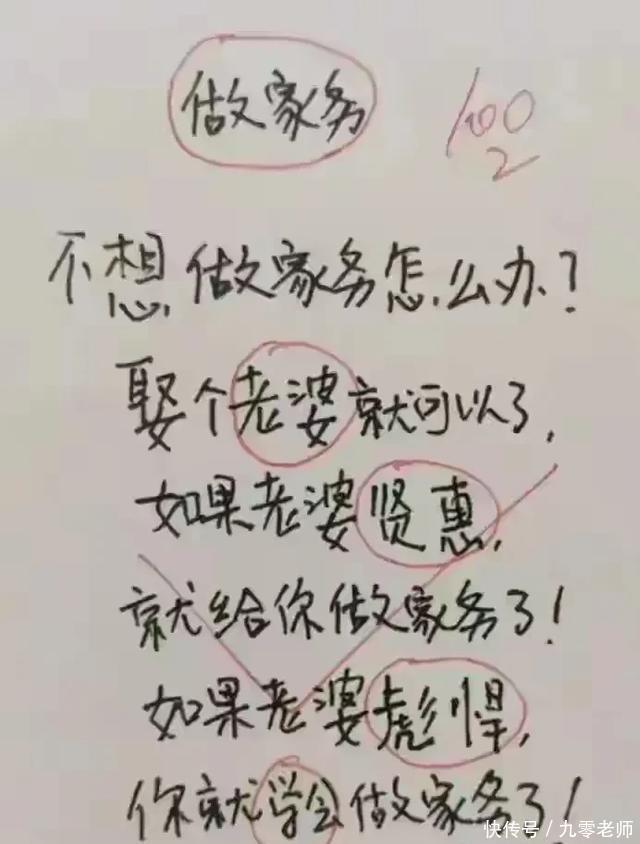 做家务
100
2
不想做家务怎么办?
娶个老婆就可以了,
如果老婆贤惠,
就给你做家务了!
如果老婆彪悍,
你就学会做家务了!
快传号/九零老师